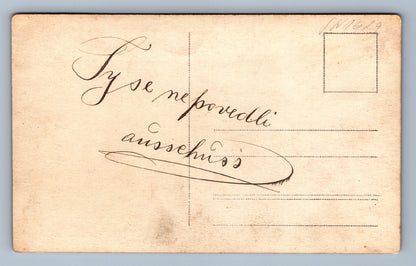 Ty se nepovedli
ausschuss